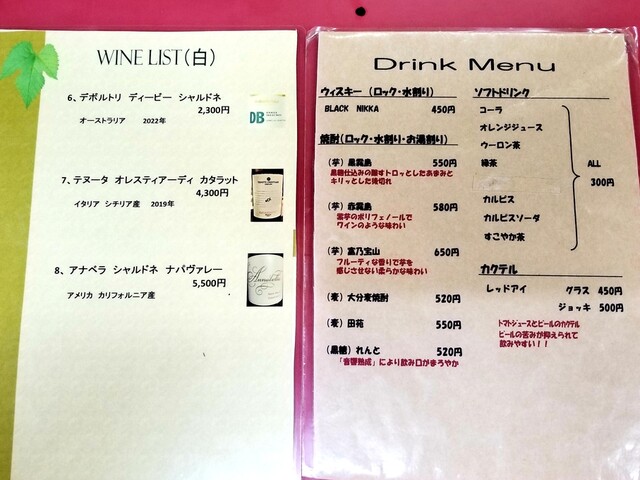 WINE LIST(白)
6、デボルトリ ディービー シャルドネ
2,300円
オーストラリア 2022年
DB
7、テヌータ オレスティアーディ カタラット
4,300円
イタリア シチリア産 2019年
8、アナベラ シャルドネ ナパヴァレー
5,500円
アメリカ カリフォルニア産
Annabella
Drink Menu
ウィスキー (ロック・水割り)
BLACK NIKKA 450円
焼酎(ロック・水割り・お湯割り)
(芋) 黒霧島 550円
黒麹仕込みの醸すトロッとしたあまみと
キリッとした後切れ
(芋) 赤霧島 580円
紫芋のポリフェノールで
ワインのような味わい
(芋) 富乃宝山 650円
フルーティな香りで芋を
感じさせない柔らかな味わい
(麦) 大分麦焼酎 520円
(麦) 田苑 550円
(黒糖) れんと 520円
「音響熟成」により飲み口がまろやか
ソフトドリンク
コーラ
オレンジジュース
ウーロン茶
緑茶
カルピス
カルピスソーダ
すこやか茶
ALL
300円
カクテル
レッドアイ グラス 450円
ジョッキ 500円
トマトジュースとビールのカクテル
ビールの苦みが抑えられて
飲みやすい!!